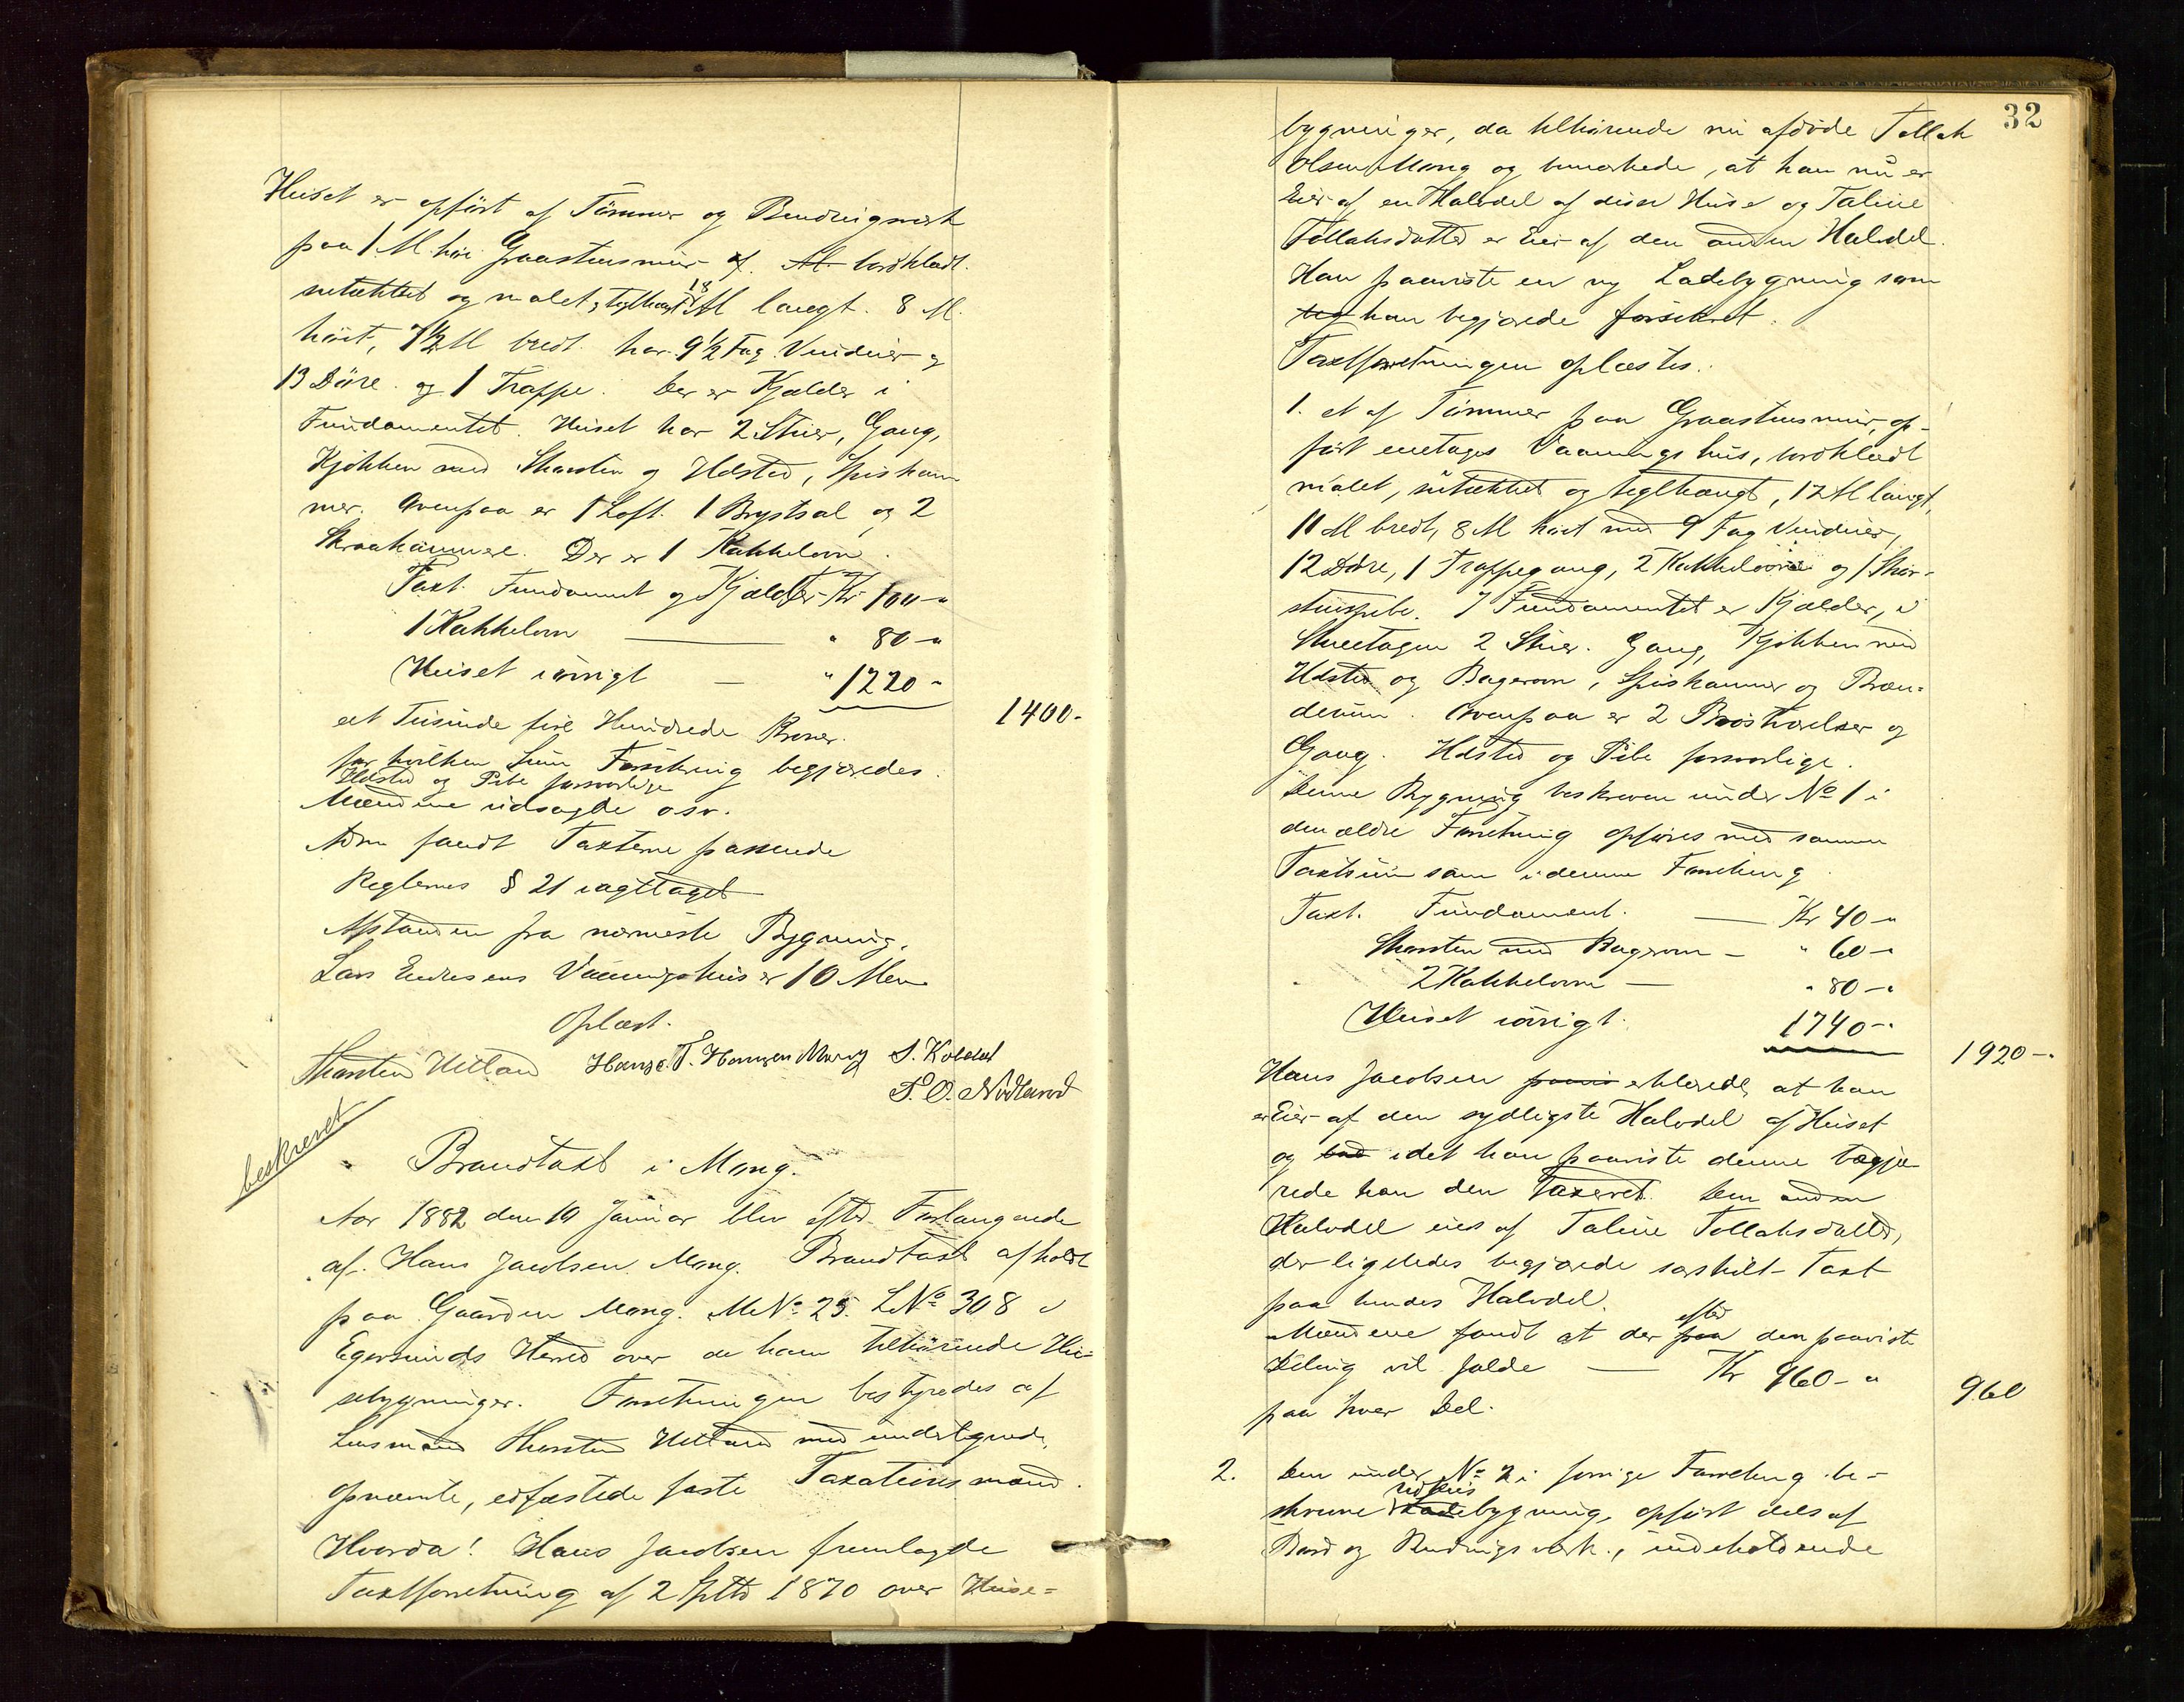 Huset er opført af Tømmer og Bindingsværk
paa 1 Al. høi Graastensmur af. Al. bordklædt
udtækket og malet, teglhængt 18 Al langt. 8 Al.
høit, 7½ Al bredt. har 9½ Fag Vinduer og
13 Døre. og 1 Trappe. Der er Kjælder i
Fundamentet. Huset har 2 Stuer, Gang,
Kjøkken med Skorsten og Ildsted, Spiskam
mer. Ovenpaa er 1 Loft. 1 Brystsal og 2
Skraakammere. Der er 1 Kakkelovn.
Taxt. Fundament og Kjælder Kr 100 "
1 Kakkelovn — " 80 "
Huset iøvrigt — " 1220 "
1400-
et Tusinde fire Hundrede Kroner.
for hvilken Sum Forsikring begjæredes.
Ildsted og Pibe forsvarlige
Mændene udsagde osv.
Adm fandt Taxterne passende
Reglernes § 21 iagttaget
Afstanden fra nærmeste Bygning,
Lars Endresens Vaaningshus er 10 Alen
Oplæst.
Thorsten Hetland Hans T. Hansen Mong S. Koldal
T. O. Nødland
beskrevet
Brandtaxt i Mong.
Aar 1882 den 19 Januar blev efter Forlangende
af Hans Jacobsen Mong. Brandtaxt afholdt
paa Gaarden Mong. M.No 25. L.No 308 i
Egersunds Herred over de ham tilhørende Hu-
sebygninger. Forretningen bestyredes af
Lensmand Thorsten Hetland med undertegnede,
opnævnte, edfæstede faste Taxationsmænd.
Hvorda! Hans Jacobsen fremlagde
Taxtforretning af 2 Septbr 1870 over Huse-
32
bygninger, da tilhørende nu afdøde Tollak
Olsen Mong og bemærkede, at han nu er
Eier af en Halvdel af disse Huse og Taline
Tollaksdatter er Eier af den anden Halvdel.
Han paaviste en ny Ladebygning som
beg han begjærede forsikret.
Taxtforretningen oplæstes.
1. et af Tømmer paa Graastensmur, op-
ført enetages Vaaningshus, bordklædt
malet, udtækket og teglhængt, 12 Al langt,
11 Al bredt, 8 Al høit med 9 Fag Vinduer,
12 Døre, 1 Trappegang, 2 Kakkelovne og 1 Skor-
stenspibe. I Fundamentet er Kjælder, i
Stueetagen 2 Stuer. Gang, Kjøkken med
Ildsted og Bagerovn, Spiskammer og Bræn-
derum. Ovenpaa er 2 Brøstværelser og
Gang. Ildsted og Pibe forsvarlige.
Denne Bygning beskreven under No 1 i
den ældre Forretning opføres med samme
Taxtsum som i denne Forretning
Taxt. Fundament. — Kr 40 "
Skorsten med Bagerovn — " 60 "
2 Kakkelovne — " 80 "
Huset iøvrigt. 1740 "
1920 -
Hans Jacobsen paavis erklærede, at han
er Eier af den sydligste Halvdel af Huset
og bad idet han paaviste denne begjæ-
rede han den taxeret. Den anden
Halvdel eies af Taline Tollaksdatter,
der ligeledes begjærede særskilt Taxt
paa hendes Halvdel.
efter
Mændene fandt at der paa den paaviste
Deling vil falde — Kr 960 "
paa hver Del.
960
2. Den under No 2 i forrige Forretning be-
Udhus
skrevne Ladebygning, opført dels af
Bord og Bindingsværk, indeholdende